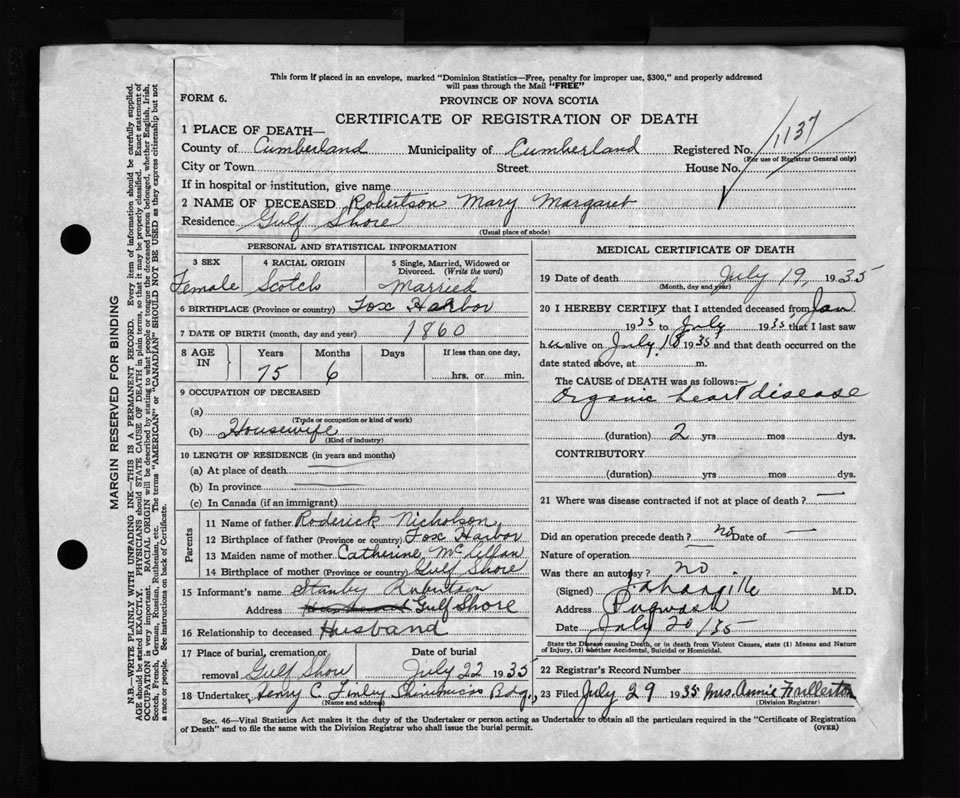 This form if placed in an envelope, marked "Dominion Statistics—Free, penalty for improper use, $300," and properly addressed
will pass through the Mail "FREE"
FORM 6.
PROVINCE OF NOVA SCOTIA
CERTIFICATE OF REGISTRATION OF DEATH
1137
1 PLACE OF DEATH—
County of Cumberland Municipality of Cumberland Registered No.
(For use of Registrar General only)
City or Town Street House No.
If in hospital or institution, give name
2 NAME OF DECEASED Robertson Mary Margaret
Residence Gulf Shore
(Usual place of abode)
PERSONAL AND STATISTICAL INFORMATION
3 SEX 4 RACIAL ORIGIN 5 Single, Married, Widowed or Divorced. (Write the word)
Female Scotch Married
6 BIRTHPLACE (Province or country) Fox Harbor
7 DATE OF BIRTH (month, day and year) 1860
8 AGE IN Years Months Days If less than one day,
75 6 hrs. or min.
9 OCCUPATION OF DECEASED
(a)
(Trade or occupation or kind of work)
(b) Housewife
(Kind of industry)
10 LENGTH OF RESIDENCE (in years and months)
(a) At place of death
(b) In province
(c) In Canada (if an immigrant)
Parents
11 Name of father Roderick Nicholson
12 Birthplace of father (Province or country) Fox Harbor
13 Maiden name of mother Catherine McLellan
14 Birthplace of mother (Province or country) Gulf Shore
15 Informant's name Stanley Robertson
Address Gulf Shore
16 Relationship to deceased Husband
17 Place of burial, cremation or removal Gulf Shore Date of burial July 22 1935
18 Undertaker Henry C. Finley Bdg.
(Name and address)
MEDICAL CERTIFICATE OF DEATH
19 Date of death July 19, 1935
(Month, day and year)
20 I HEREBY CERTIFY that I attended deceased from Jan
1935 to July 1935, that I last saw
her alive on July 18 1935 and that death occurred on the
date stated above, at m.
The CAUSE OF DEATH was as follows:—
Organic heart disease
(duration) 2 yrs mos dys.
CONTRIBUTORY
(duration) yrs mos dys.
21 Where was disease contracted if not at place of death?
Did an operation precede death? no Date of
Nature of operation
Was there an autopsy? no
(Signed) M.D.
Address Pugwash
Date July 20/35
State the Disease causing Death, or in death from Violent Causes, state (1) Means and Nature
of Injury, (2) whether Accidental, Suicidal or Homicidal.
22 Registrar's Record Number
23 Filed July 29 1935 Mrs. Annie
(Division Registrar)
Sec. 46—Vital Statistics Act makes it the duty of the Undertaker or person acting as Undertaker to obtain all the particulars required in the "Certificate of Registration
of Death" and to file the same with the Division Registrar who shall issue the burial permit.
(OVER)
MARGIN RESERVED FOR BINDING
N.B.—WRITE PLAINLY WITH UNFADING INK—THIS IS A PERMANENT RECORD. Every item of information should be carefully supplied.
AGE should be stated EXACTLY. PHYSICIANS should STATE CAUSE OF DEATH in plain terms, so that it may be properly classified. Exact statement of
OCCUPATION is very important. RACIAL ORIGIN will be described by stating to what people or tongue the deceased person belonged, whether English, Irish,
Scotch, French, German, Russian, Ruthenian, etc. The terms "AMERICAN" or "CANADIAN" SHOULD NOT BE USED as they express citizenship but not
a race or people. See instructions on back of Certificate.